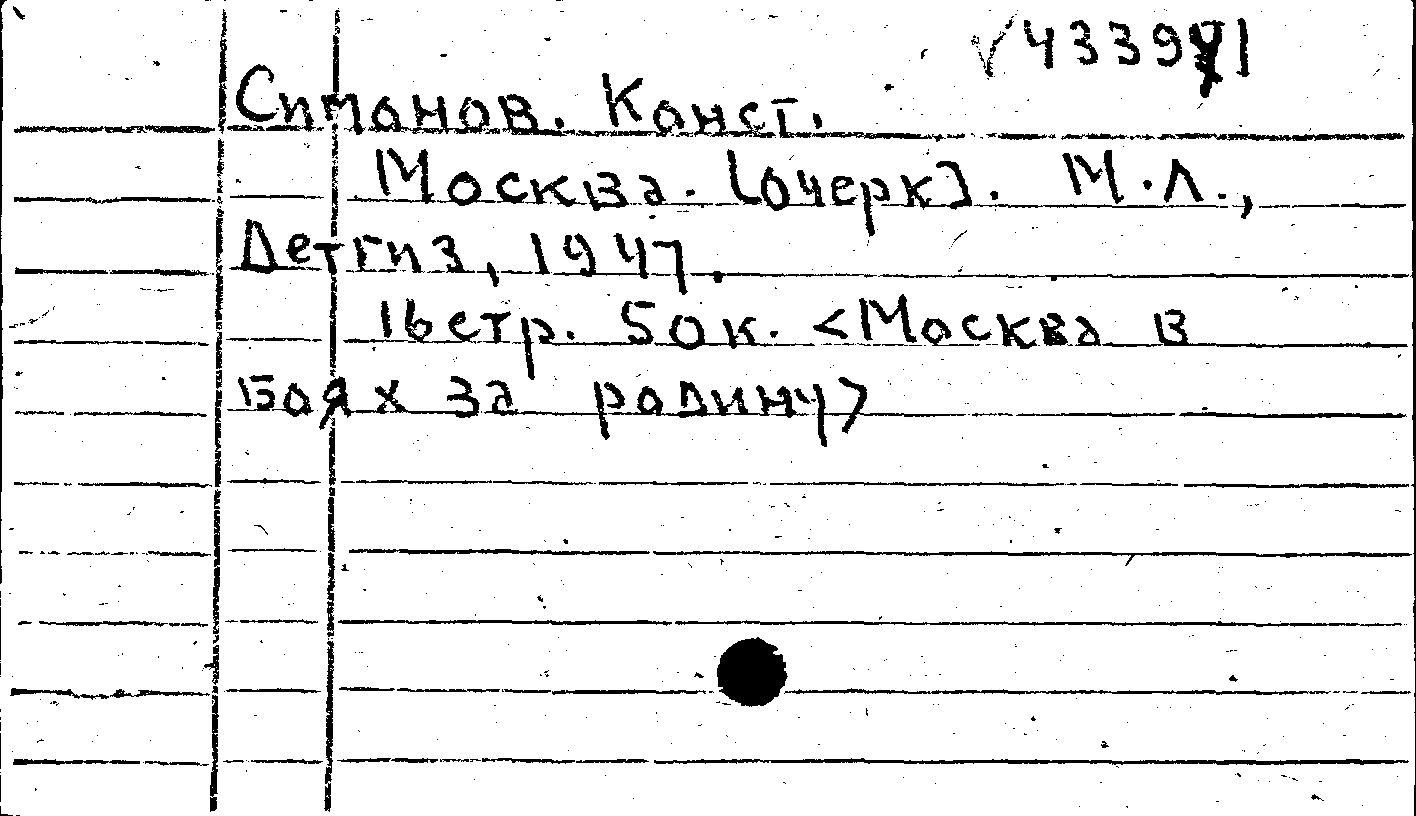 Симонов. Конст.
Москва. [очерк]. М.Л.,
Детгиз, 1947.
16стр. 50к. <Москва в
боях за родину>